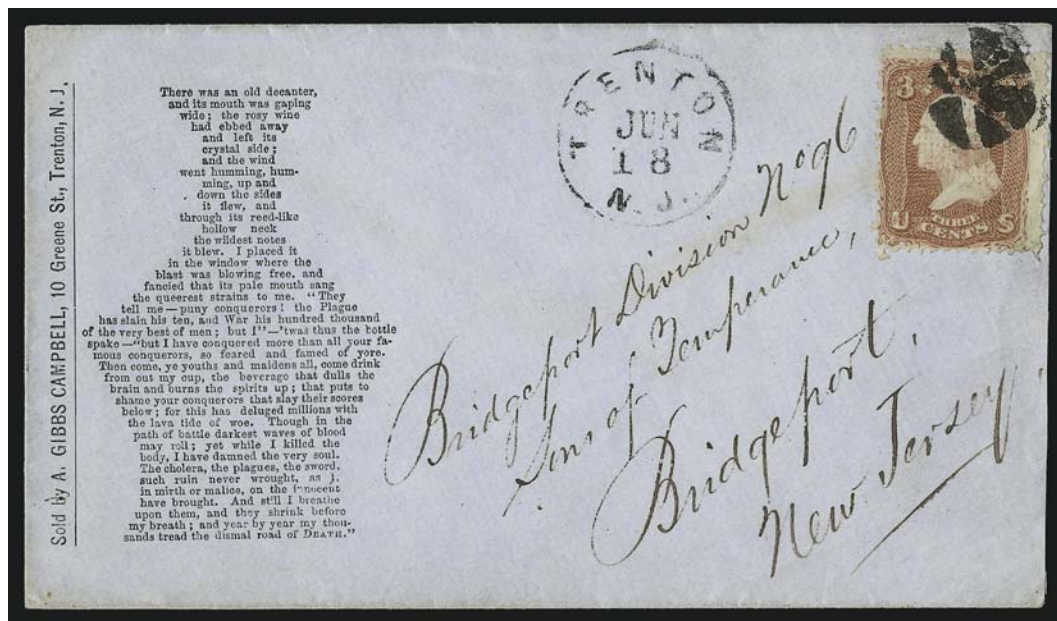 Sold by A. GIBBS CAMPBELL, 10 Greene St., Trenton, N. J.
There was an old decanter,
and its mouth was gaping
wide; the rosy wine
had ebbed away
and left its
crystal side;
and the wind
went humming, hum-
ming, up and
down the sides
it flew, and
through its reed-like
hollow neck
the wildest notes
it blew. I placed it
in the window where the
blast was blowing free, and
fancied that its pale mouth sang
the queerest strains to me. "They
tell me—puny conquerors! the Plague
has slain his ten, and War his hundred thousand
of the very best of men; but I"—'twas thus the bottle
spake—"but I have conquered more than all your fa-
mous conquerors, so feared and famed of yore.
Then come, ye youths and maidens all, come drink
from out my cup, the beverage that dulls the
brain and burns the spirits up; that puts to
shame your conquerors that slay their scores
below; for this has deluged millions with
the lava tide of woe. Though in the
path of battle darkest waves of blood
may roll; yet while I killed the
body, I have damned the very soul.
The cholera, the plagues, the sword,
such ruin never wrought, as I,
in mirth or malice, on the innocent
have brought. And still I breathe
upon them, and they shrink before
my breath; and year by year my thou-
sands tread the dismal road of DEATH."
TRENTON
JUN
18
N.J.
3 3
U S
CENTS
Bridgeport Division No 96
Sons of Temperance,
Bridgeport,
New Jersey.